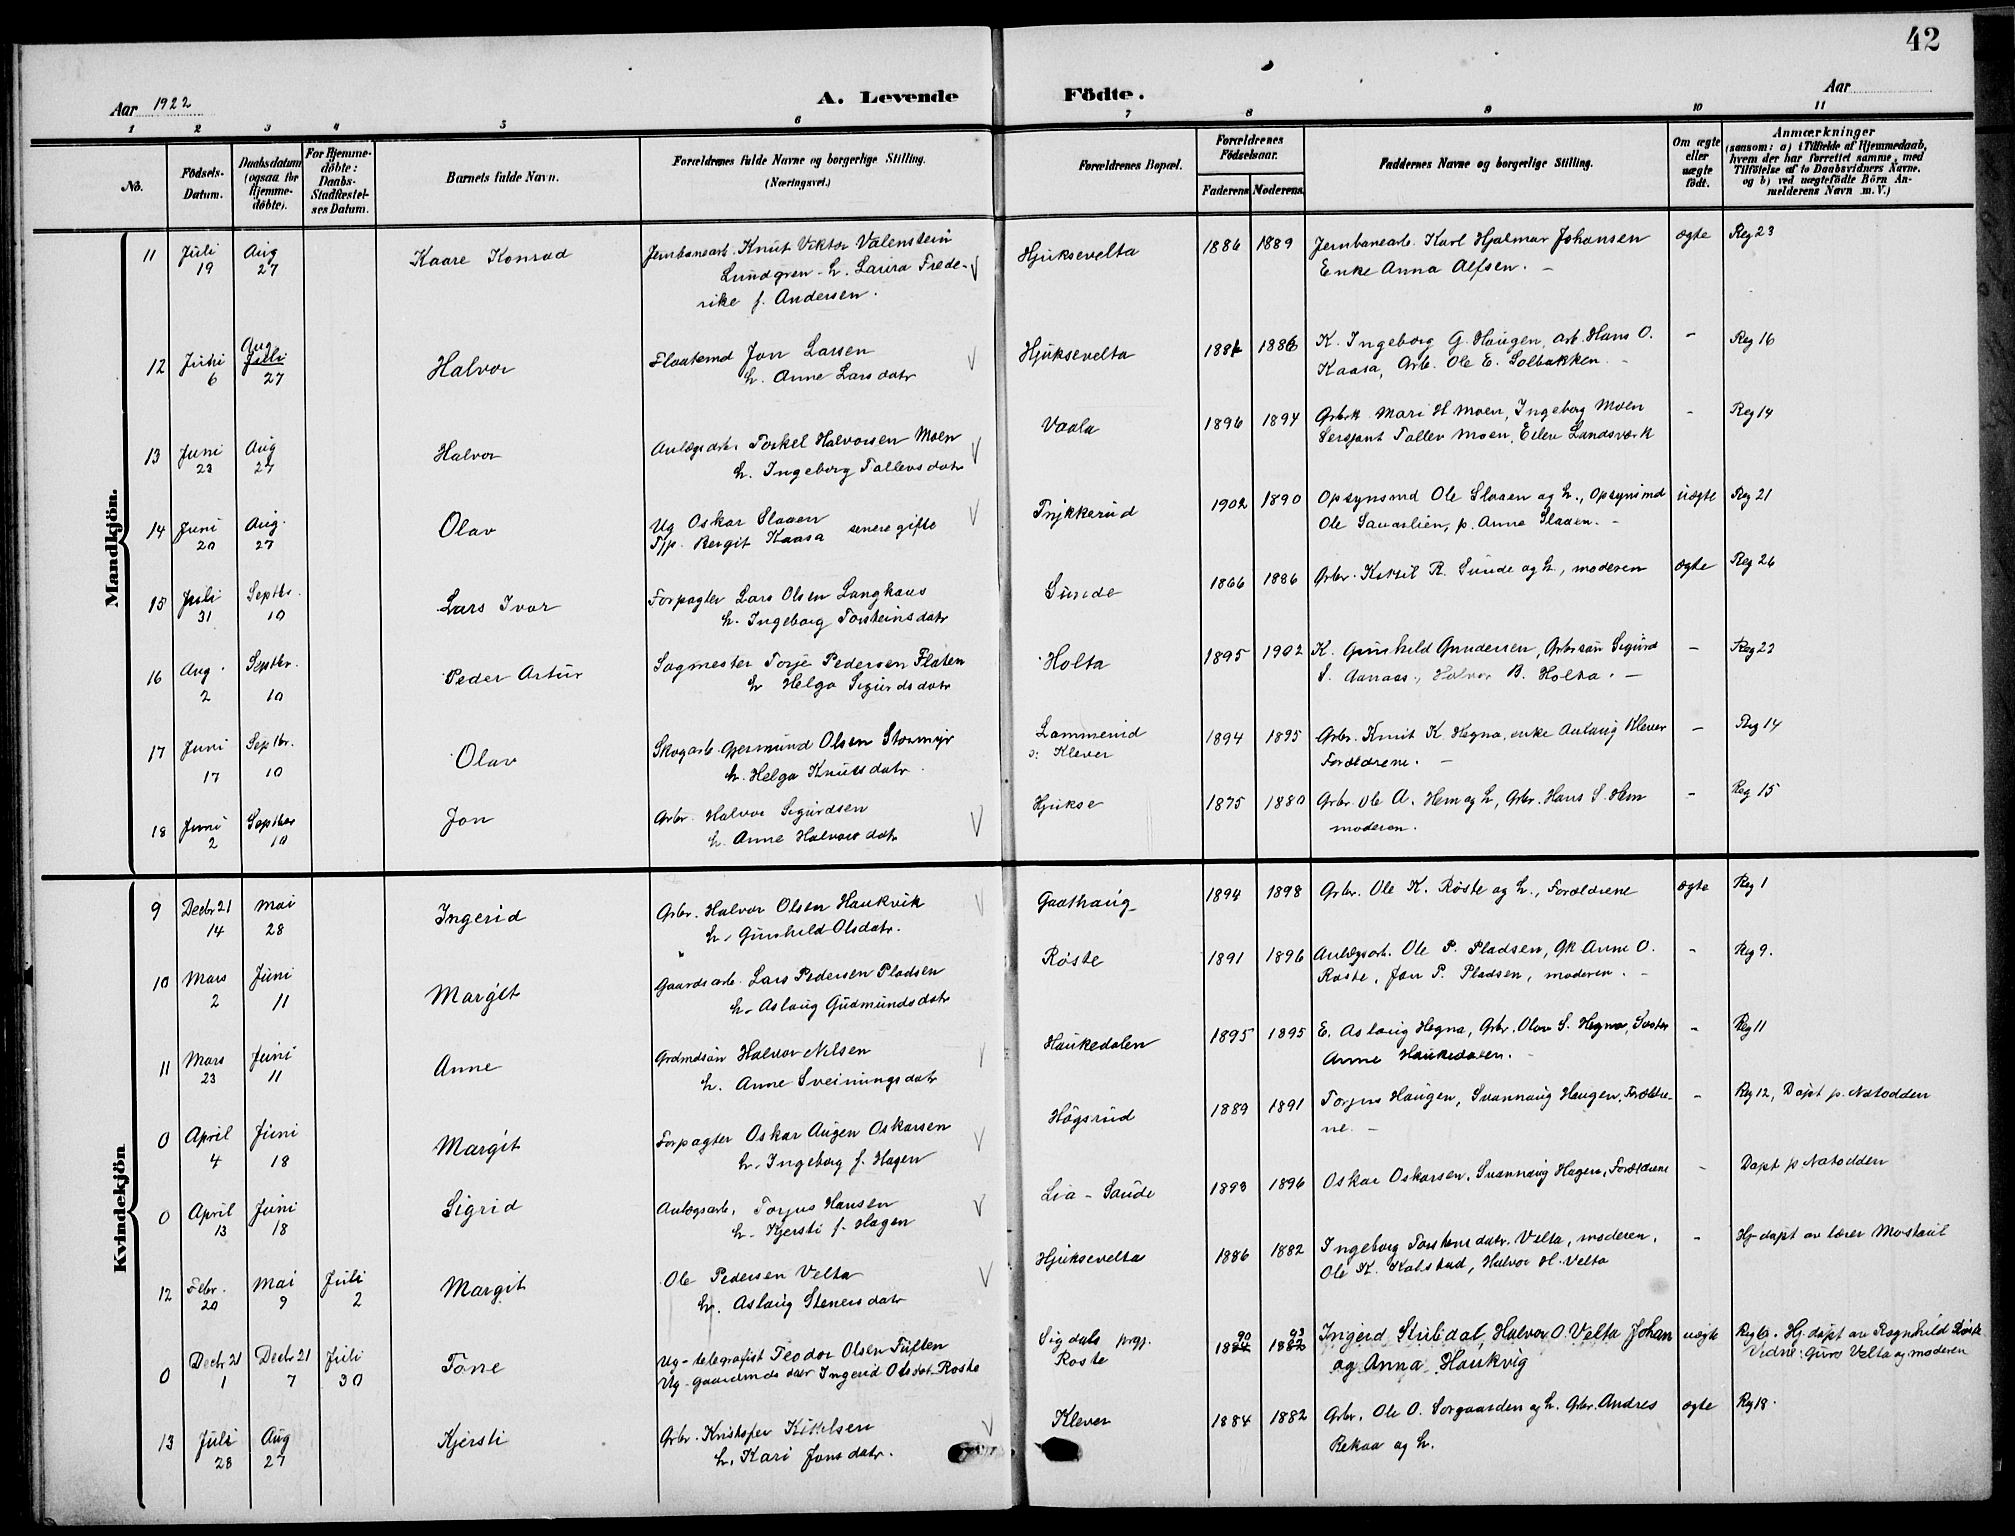 42
Aar 1922
A. Levende Födte.
Aar
1 2 3 4 5 6 7 8 9 10 11
No.
Födsels-Datum.
Daabsdatum (ogsaa for Hjemme-döbte).
For Hjemme-döbte: Daabs-Stadfæstel-ses Datum.
Barnets fulde Navn.
Forældrenes fulde Navne og borgerlige Stilling. (Næringsvei.)
Forældrenes Bopæl.
Forældrenes Födselsaar.
Faderens Moderens
Faddernes Navne og borgerlige Stilling.
Om ægte eller uægte født.
Anmærkninger
(saasom: a) i Tilfælde af Hjemmedaab, hvem der har forrettet samme, med Tilføielse af to Daabsvidners Navne, og b) ved uægtefödte Börn Anmelderens Navn m. V.)
Mandkjön.
11 Juli 19 Aug 27 Kaare Konrad Jernbanearb. Knut Viktor Valenstein Hjuksevelta 1886 1889 Jernbanearb. Karl Hjalmar Johansen ægte Reg 23
Lundgren - h. Laura Frede- Enke Anna Alfsen. -
rike f. Andersen.
12 Juni 6 Aug Juli 27 Halvor Flaatemd Jon Larsen Hjuksevelta 1886 K. Ingeborg G. Haugen, arb. Hans O. - Reg 16
h. Anne Larsdatr Kaasa, Arb. Ole E. Solbakken. -
13 Juni 23 Aug 27 Halvor Anlægsarb. Torkel Halvorsen Moen Vaala 1896 1894 Mari H Moen, Ingeborg Moen - Reg 14
h. Ingeborg Tallevsdatr Sersjant Tallev Moen, Landsverk
14 Juni 20 Aug. 27 Olav Ug Oskar Slaaen Trykkerud 1902 1890 Opsynsmd Ole Slaaen og h., Opsynsmd uægte Reg 21
Tjp. Bergit Kaasa senere gifte Ole Sauarlien, p. Anne Slaaen. -
15 Juli 31 Septbr. 10 Lars Ivar Forpagter Lars Olsen Langkaas Sunde 1866 1886 Arbr. Kittil R. Sunde og h., moderen ægte Reg 26
h. Ingeborg Torsteinsdatr
16 Aug. 2 Septbr. 10 Peder Artur Sagmester Torje Pedersen Flaten Holta 1895 1902 K. Gunhild Gundersen, Arbrsøn Sigurd - Reg 22
h Helga Sigurdsdatr S. Aanaas., Halvor B. Holta. -
17 Juni 17 Septbr. 10 Olav Skogarb. Gjermund Olsen Stormyr 1894 1895 Arbr. Knut K. Hegna, enke Aslaug Klever - Reg 14
h. Helga Knutsdatr. o: Klever Forældrene. -
18 Juni 2 Septbr 10 Jon Arbr. Halvor Sigurdsen Hjukse 1875 1880 Arbr. Ole A. Hem og h, Arbr. Hans S. Hem - Reg 15
h. Anne Halvorsdatr moderen.
Kvindekjön
9 Decbr 21 14 Mai 28 Ingerid Arbr. Halvor Olsen Haukvik Gaathaug 1894 1898 Arbr. Ole K. Røste og h., Forældrene ægte Reg 1
h. Gunhild Olsdatr.
10 Mars 2 Juni 11 Margit Gaardsarb. Lars Pedersen Pladsen Røste 1891 1896 Anlægsarb. Ole P. Pladsen, Gk Anne O. - Reg 9.
h. Aslaug Gudmundsdatr Røste, Jon P. Pladsen, moderen. -
11 Mars 23 Juni 11 Anne Grdmdsøn Halvor Nilsen Haukedalen 1895 1895 E. Aslaug Hegna, Arbr. Olav S. Hegna, Søster - Reg 11
h. Anne Sveinungsdatr Anne Haukedalen. -
0 April 4 Juni 18 Margit Forpagter Oskar Augen Oskarsen Høgsrud 1889 1891 Torjus Haugen, Svannaug Haugen, Forældre- - Reg 12, Døpt p. Notodden
h. Ingeborg f. Hagen ne. -
0 April 13 Juni 18 Sigrid Anlægsarb. Torjus Hansen Lia - Saude 1893 1896 Oskar Oskarsen, Svannaug Hagen, Forældrene - Døpt p Notodden
h. Kjersti f. Hagen
12 Febr. 20 Mai 9 Juli 2 Margit Ole Pedersen Velta Hjuksevelta 1886 1882 Ingeborg datr. Velta, moderen, - Hj døpt av lærer
h. Aslaug Stenersdatr Ole K. Kolstad, Halvor H. Velta
0 Decbr 21 1 Decbr 21 7 Juli 30 Tone Ug - telegrafist Teodor Olsen Tuften Sigdals prgj. 90 1884 93 1882 Ingerid Halvor O. Velta Johan uægte Reg 6. Hj. døpt av Ragnhild Røste
Ug. gaardmds datr Ingerid Olsdatr Røste Røste og Anna Haukvig Vidne: Guro Velta og moderen
13 Juli 28 Aug 27 Kjersti Arbr. Kristofer Kittelsen Klever 1884 1882 Arbr. Ole O. Sorgaarden og h. Arbr. Andres ægte Reg 18.
h. Kari Jonsdatr. Rekaa og h.